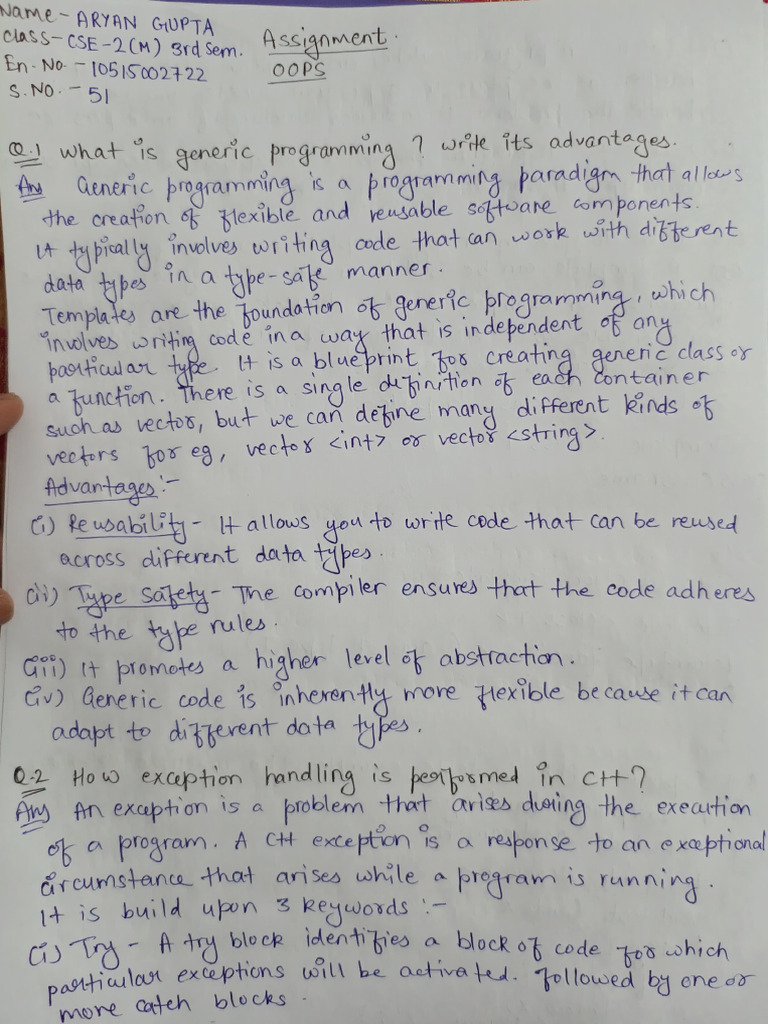 Name - ARYAN GUPTA
Class - CSE-2(M) 3rd Sem.
En. No. - 10515002722
S. NO. - 51
Assignment.
OOPS
Q.1 What is generic programming ? write its advantages.
Ans Generic programming is a programming paradigm that allows
the creation of flexible and reusable software components.
It typically involves writing code that can work with different
data types in a type-safe manner.
Templates are the foundation of generic programming, which
involves writing code in a way that is independent of any
particular type. It is a blueprint for creating generic class or
a function. There is a single definition of each container
such as vector, but we can define many different kinds of
vectors for eg, vector <int> or vector <string>.
Advantages :-
(i) Reusability - It allows you to write code that can be reused
across different data types.
(ii) Type Safety - The compiler ensures that the code adheres
to the type rules.
(iii) It promotes a higher level of abstraction.
(iv) Generic code is inherently more flexible because it can
adapt to different data types.
Q.2 How exception handling is performed in C++?
Ans An exception is a problem that arises during the execution
of a program. A C++ exception is a response to an exceptional
circumstance that arises while a program is running.
It is build upon 3 keywords :-
(i) Try - A try block identifies a block of code for which
particular exceptions will be activated. followed by one or
more catch blocks.